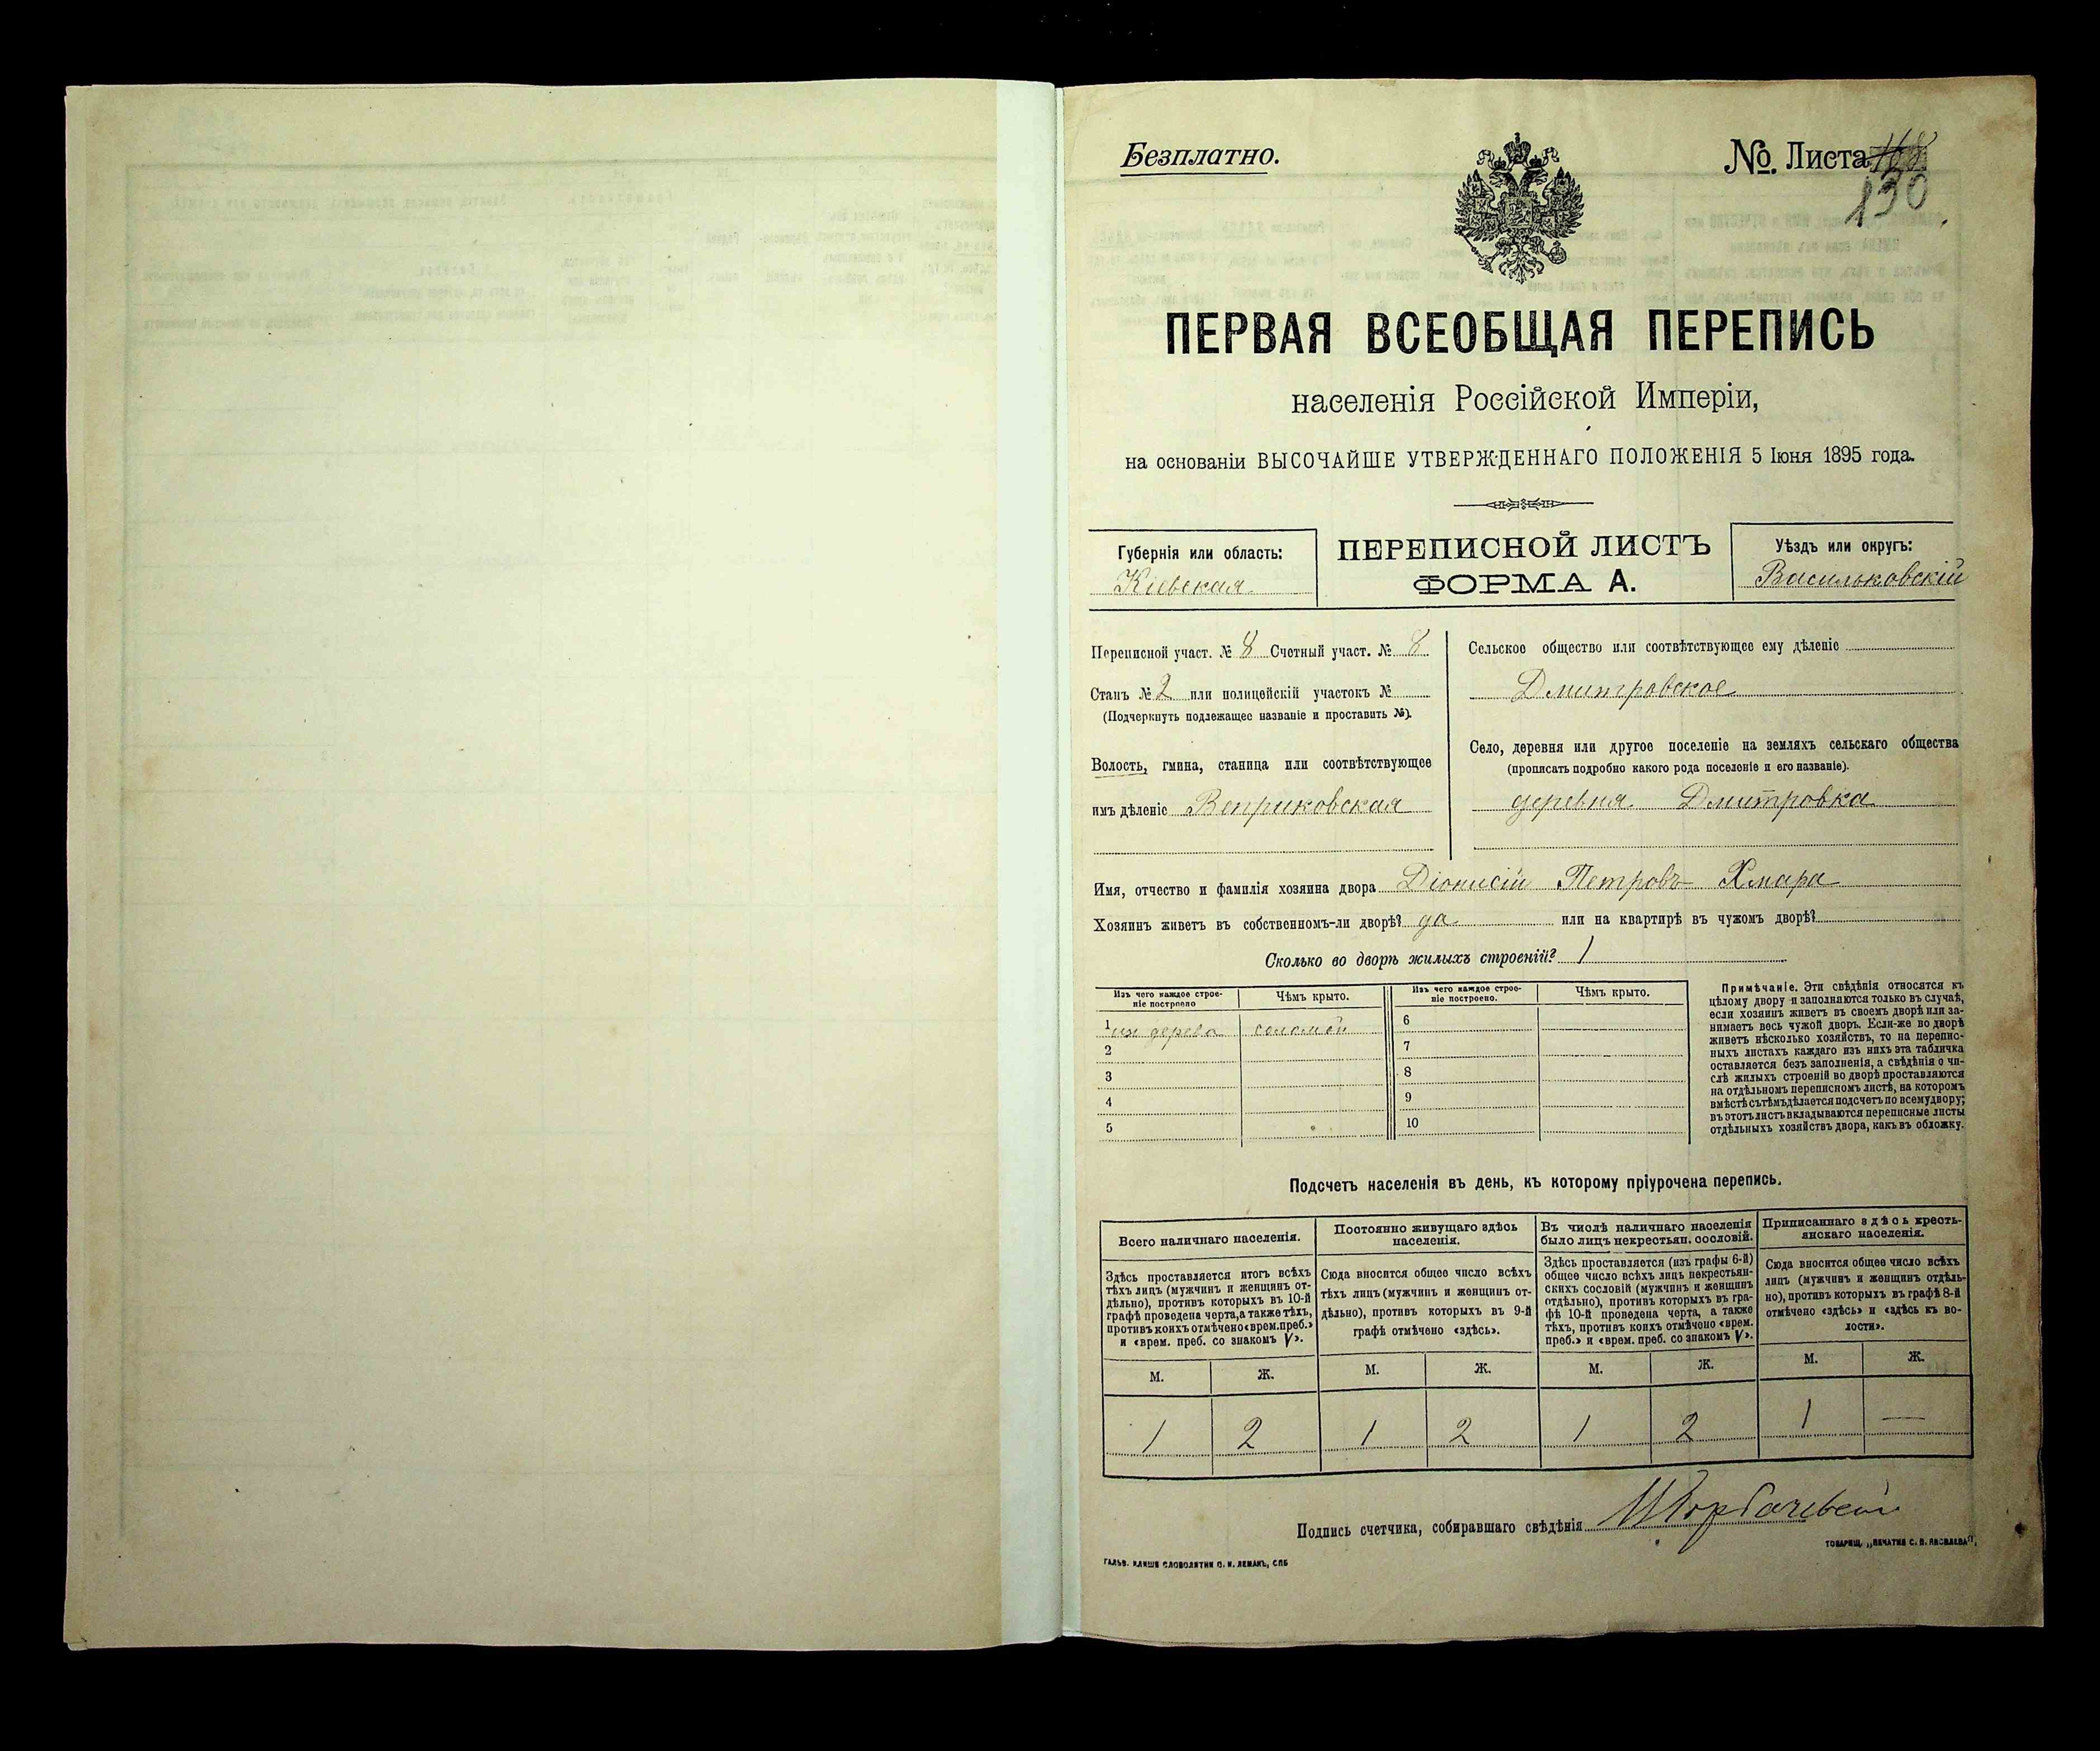 Безплатно.
№. Листа 168
130
ПЕРВАЯ ВСЕОБЩАЯ ПЕРЕПИСЬ
населенія Россійской Имперіи,
на основаніи ВЫСОЧАЙШЕ УТВЕРЖДЕННАГО ПОЛОЖЕНІЯ 5 Іюня 1895 года.
Губернія или область:
Кіевская
ПЕРЕПИСНОЙ ЛИСТЪ
ФОРМА А.
Уѣздъ или округъ:
Васильковскій
Переписной участ. № 8 Счетный участ. № 8
Станъ № 2 или полицейскій участокъ №
(Подчеркнуть подлежащее названіе и проставить №).
Волость, гмина, станица или соотвѣтствующее
имъ дѣленіе Веприковская
Сельское общество или соотвѣтствующее ему дѣленіе
Дмитровское
Село, деревня или другое поселеніе на земляхъ сельскаго общества
(прописать подробно какого рода поселеніе и его названіе).
деревня Дмитровка
Имя, отчество и фамилія хозяина двора Діонисій Петровъ Хмара
Хозяинъ живетъ въ собственномъ-ли дворѣ? да или на квартирѣ въ чужомъ дворѣ?
Сколько во дворѣ жилыхъ строеній? 1
Изъ чего каждое строе-
ніе построено
Чѣмъ крыто.
1 изъ дерева соломой
2
3
4
5
Изъ чего каждое строе-
ніе построено.
Чѣмъ крыто.
6
7
8
9
10
Примѣчаніе. Эти свѣдѣнія относятся къ
цѣлому двору и заполняются только въ случаѣ,
если хозяинъ живетъ въ своемъ дворѣ или за-
нимаетъ весь чужой дворъ. Если-же во дворѣ
живетъ нѣсколько хозяйствъ, то на перепис-
ныхъ листахъ каждаго изъ нихъ эта табличка
оставляется безъ заполненія, а свѣдѣнія о чи-
слѣ жилыхъ строеній во дворѣ проставляются
на отдѣльномъ переписномъ листѣ, на которомъ
вмѣстѣ съ тѣмъ дѣлается подсчетъ по всему двору;
въ этотъ листъ вкладываются переписные листы
отдѣльныхъ хозяйствъ двора, какъ въ обложку.
Подсчетъ населенія въ день, къ которому пріурочена перепись.
Всего наличнаго населенія.
Здѣсь проставляется итогъ всѣхъ
тѣхъ лицъ (мужчинъ и женщинъ от-
дѣльно), противъ которыхъ въ 10-й
графѣ проведена черта, а также тѣхъ,
противъ коихъ отмѣчено «врем. преб.»
и «врем. преб. со знакомъ V».
М. Ж.
1 2
Постоянно живущаго здѣсь
населенія.
Сюда вносится общее число всѣхъ
тѣхъ лицъ (мужчинъ и женщинъ от-
дѣльно), противъ которыхъ въ 9-й
графѣ отмѣчено «здѣсь».
М. Ж.
1 2
Въ числѣ наличнаго населенія
было лицъ некрестьян. сословій.
Здѣсь проставляется (изъ графы 6-й)
общее число всѣхъ лицъ некрестьян-
скихъ сословій (мужчинъ и женщинъ
отдѣльно), противъ которыхъ въ гра-
фѣ 10-й проведена черта, а также
тѣхъ, противъ коихъ отмѣчено «врем.
преб.» и «врем. преб. со знакомъ V».
М. Ж.
1 2
Приписаннаго здѣсь кресть-
янскаго населенія.
Сюда вносится общее число всѣхъ
лицъ (мужчинъ и женщинъ отдѣль-
но), противъ которыхъ въ графѣ 8-й
отмѣчено «здѣсь» и «здѣсь къ во-
лости».
М. Ж.
1 —
Подпись счетчика, собиравшаго свѣдѣнія
ГАЛЬВ. КЛИШЕ СЛОВОЛИТНИ О. И. ЛЕМАНЪ, СПБ
ТОВАРИЩ. „ПЕЧАТНЯ С. П. ЯКОВЛЕВА“.